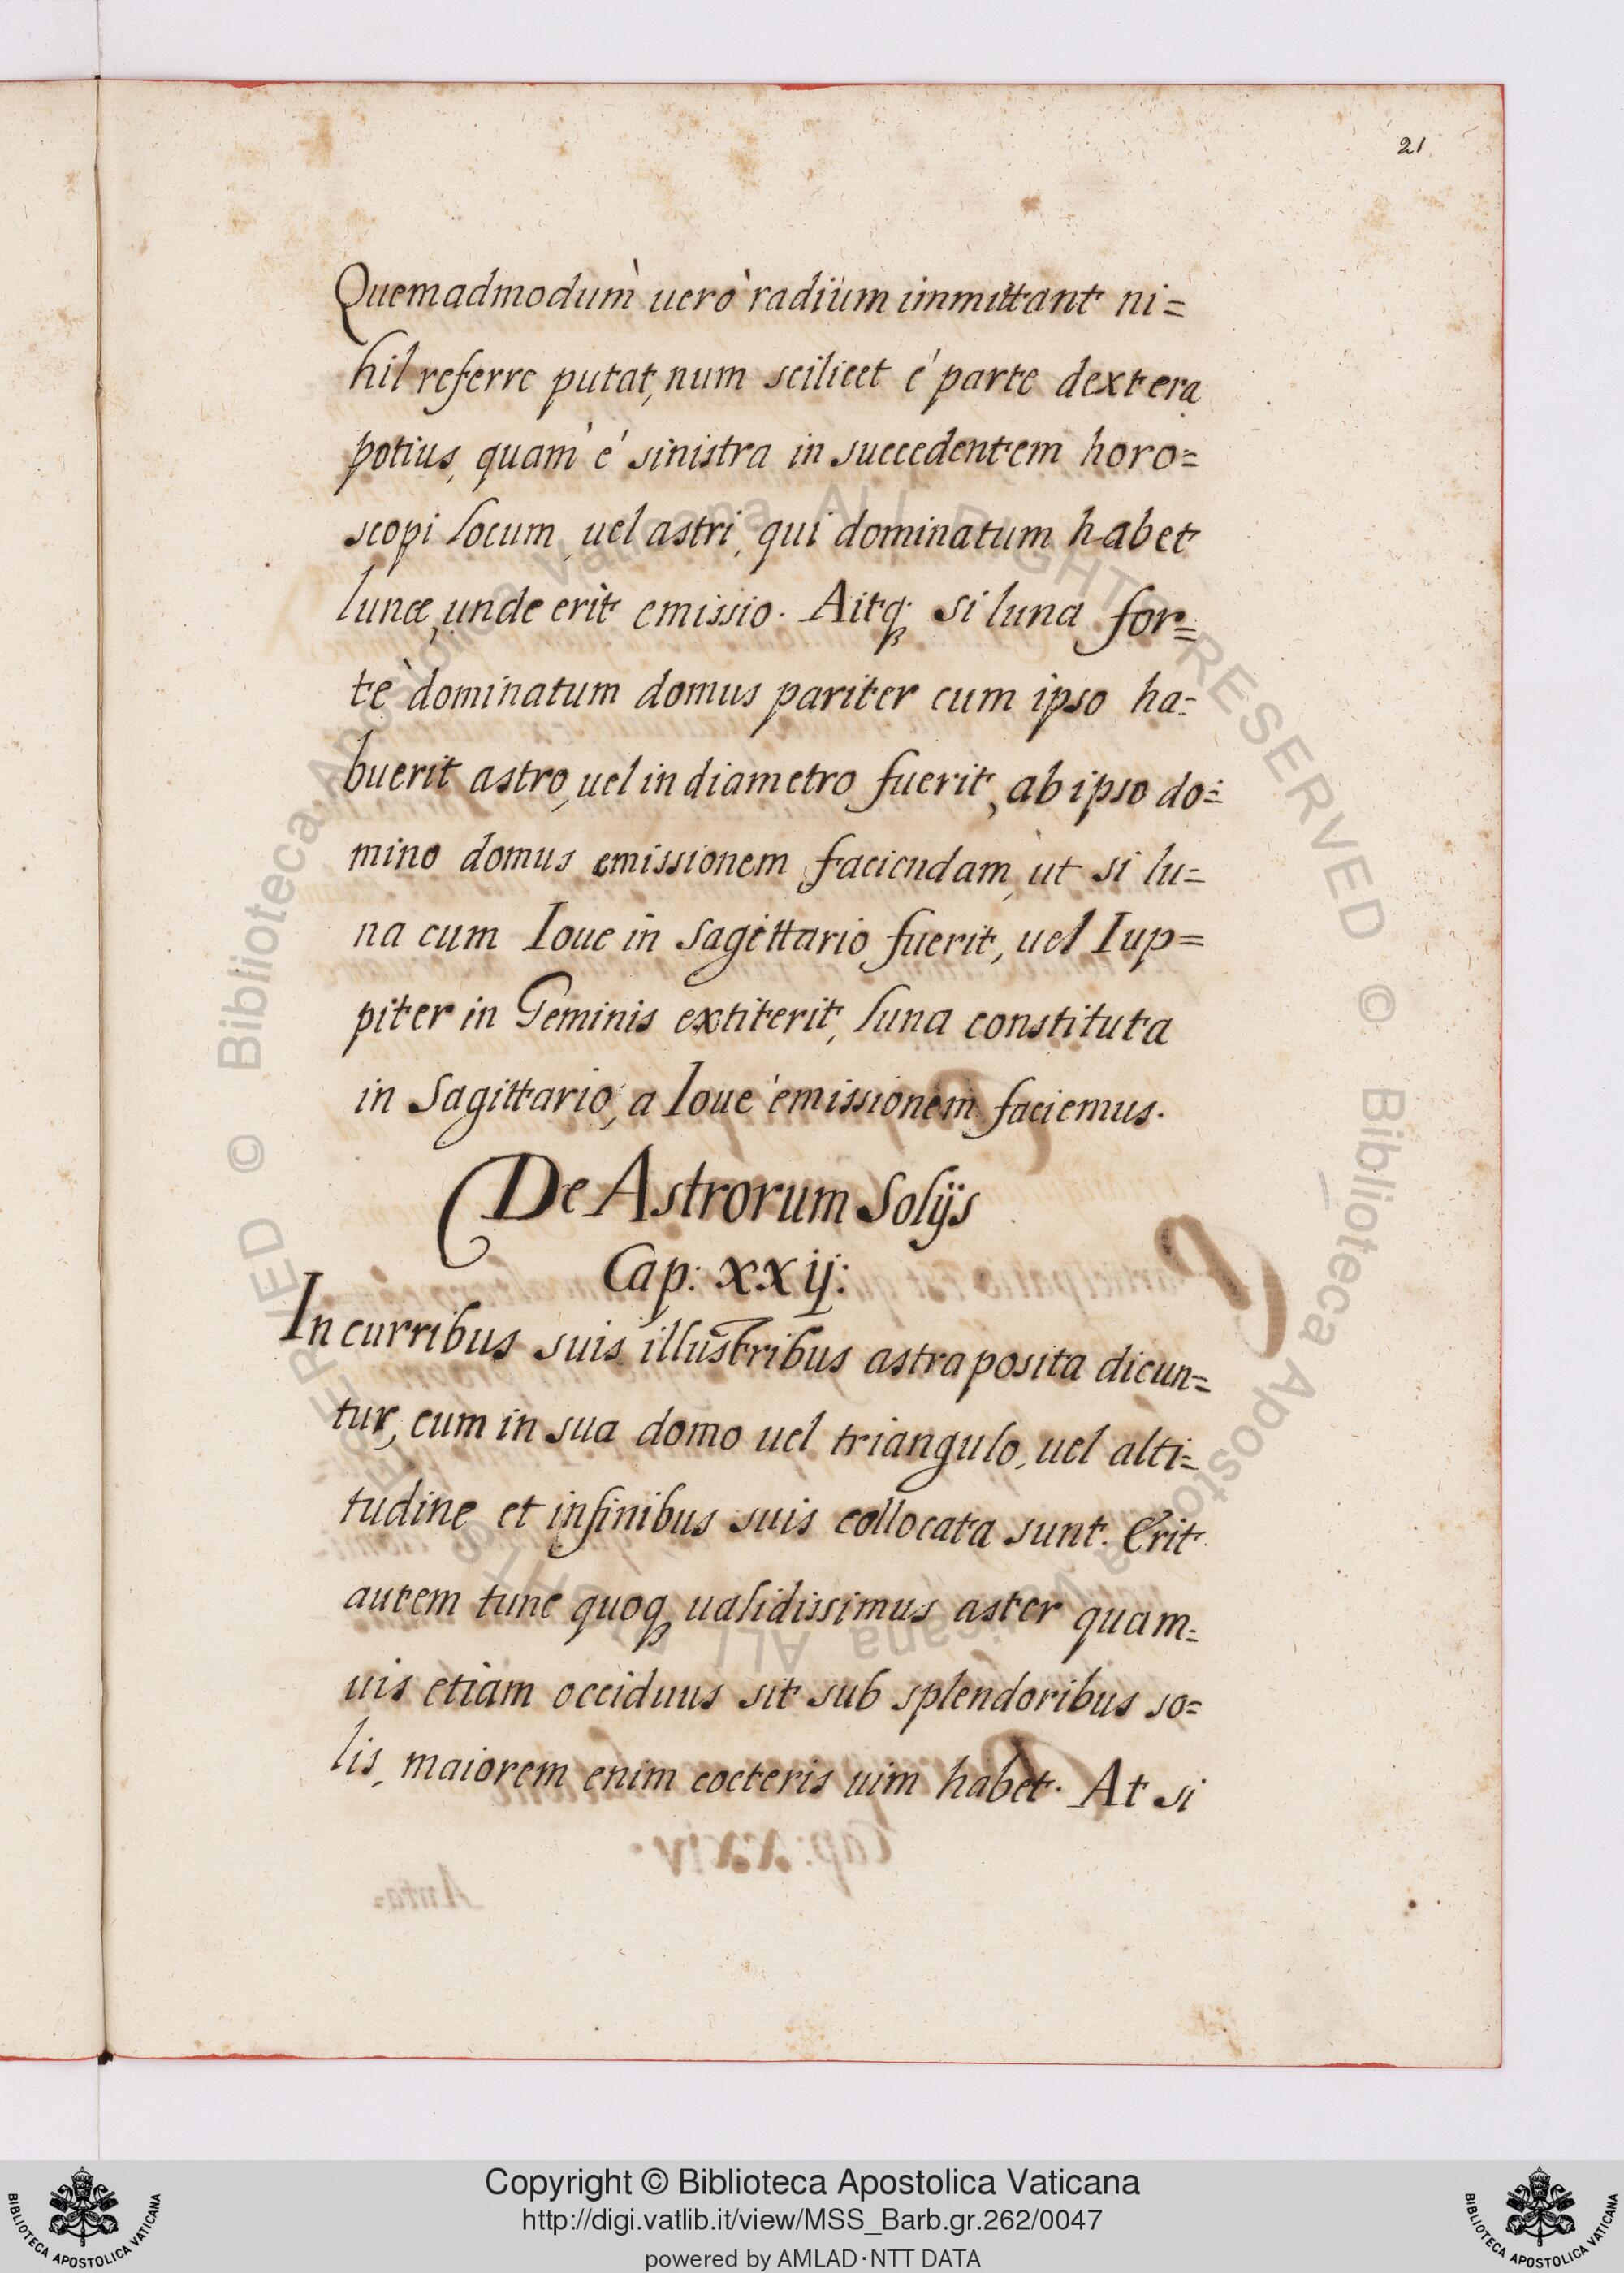 21
Quemadmodum̀ uerò radiüm immittant ni=
hil referre putat, num scilicet é parte dextera
potius, quam̀ é sinistra in succedentem horo=
scopi locum, uel astri, qui dominatum habet
lunæ, unde erit emissio. Aitq; si luna for=
tè dominatum domus pariter cum ipso ha=
buerit astro, uel in diametro fuerit, ab ipso do=
mino domus emissionem faciendam, ùt si lu=
na cum Ioue in Sagittario fuerit, uel Iup=
piter in Geminis extiterit, luna constituta
in Sagittario, a Ioue emissionem faciemus.
De Astrorum Solijs
Cap: xxij:
In curribus suis illustribus astra posita dicun=
tur, cum in sua domo uel triangulo, uel alti=
tudine et in finibus suis collocata sunt. Erit
autem tunc quoq; ualidissimus aster quam=
uis etiàm occiduus sit sub splendoribus so=
lis, maiorem enim coeteris uim habet. At si
Cap: xxiv.
Auta=
© Biblioteca Apostolica Vaticana ALL RIGHTS RESERVED © Biblioteca Apostolica Vaticana ALL RIGHTS RESERVED
Copyright © Biblioteca Apostolica Vaticana
http://digi.vatlib.it/view/MSS_Barb.gr.262/0047
powered by AMLAD·NTT DATA
BIBLIOTECA APOSTOLICA VATICANA
BIBLIOTECA APOSTOLICA VATICANA